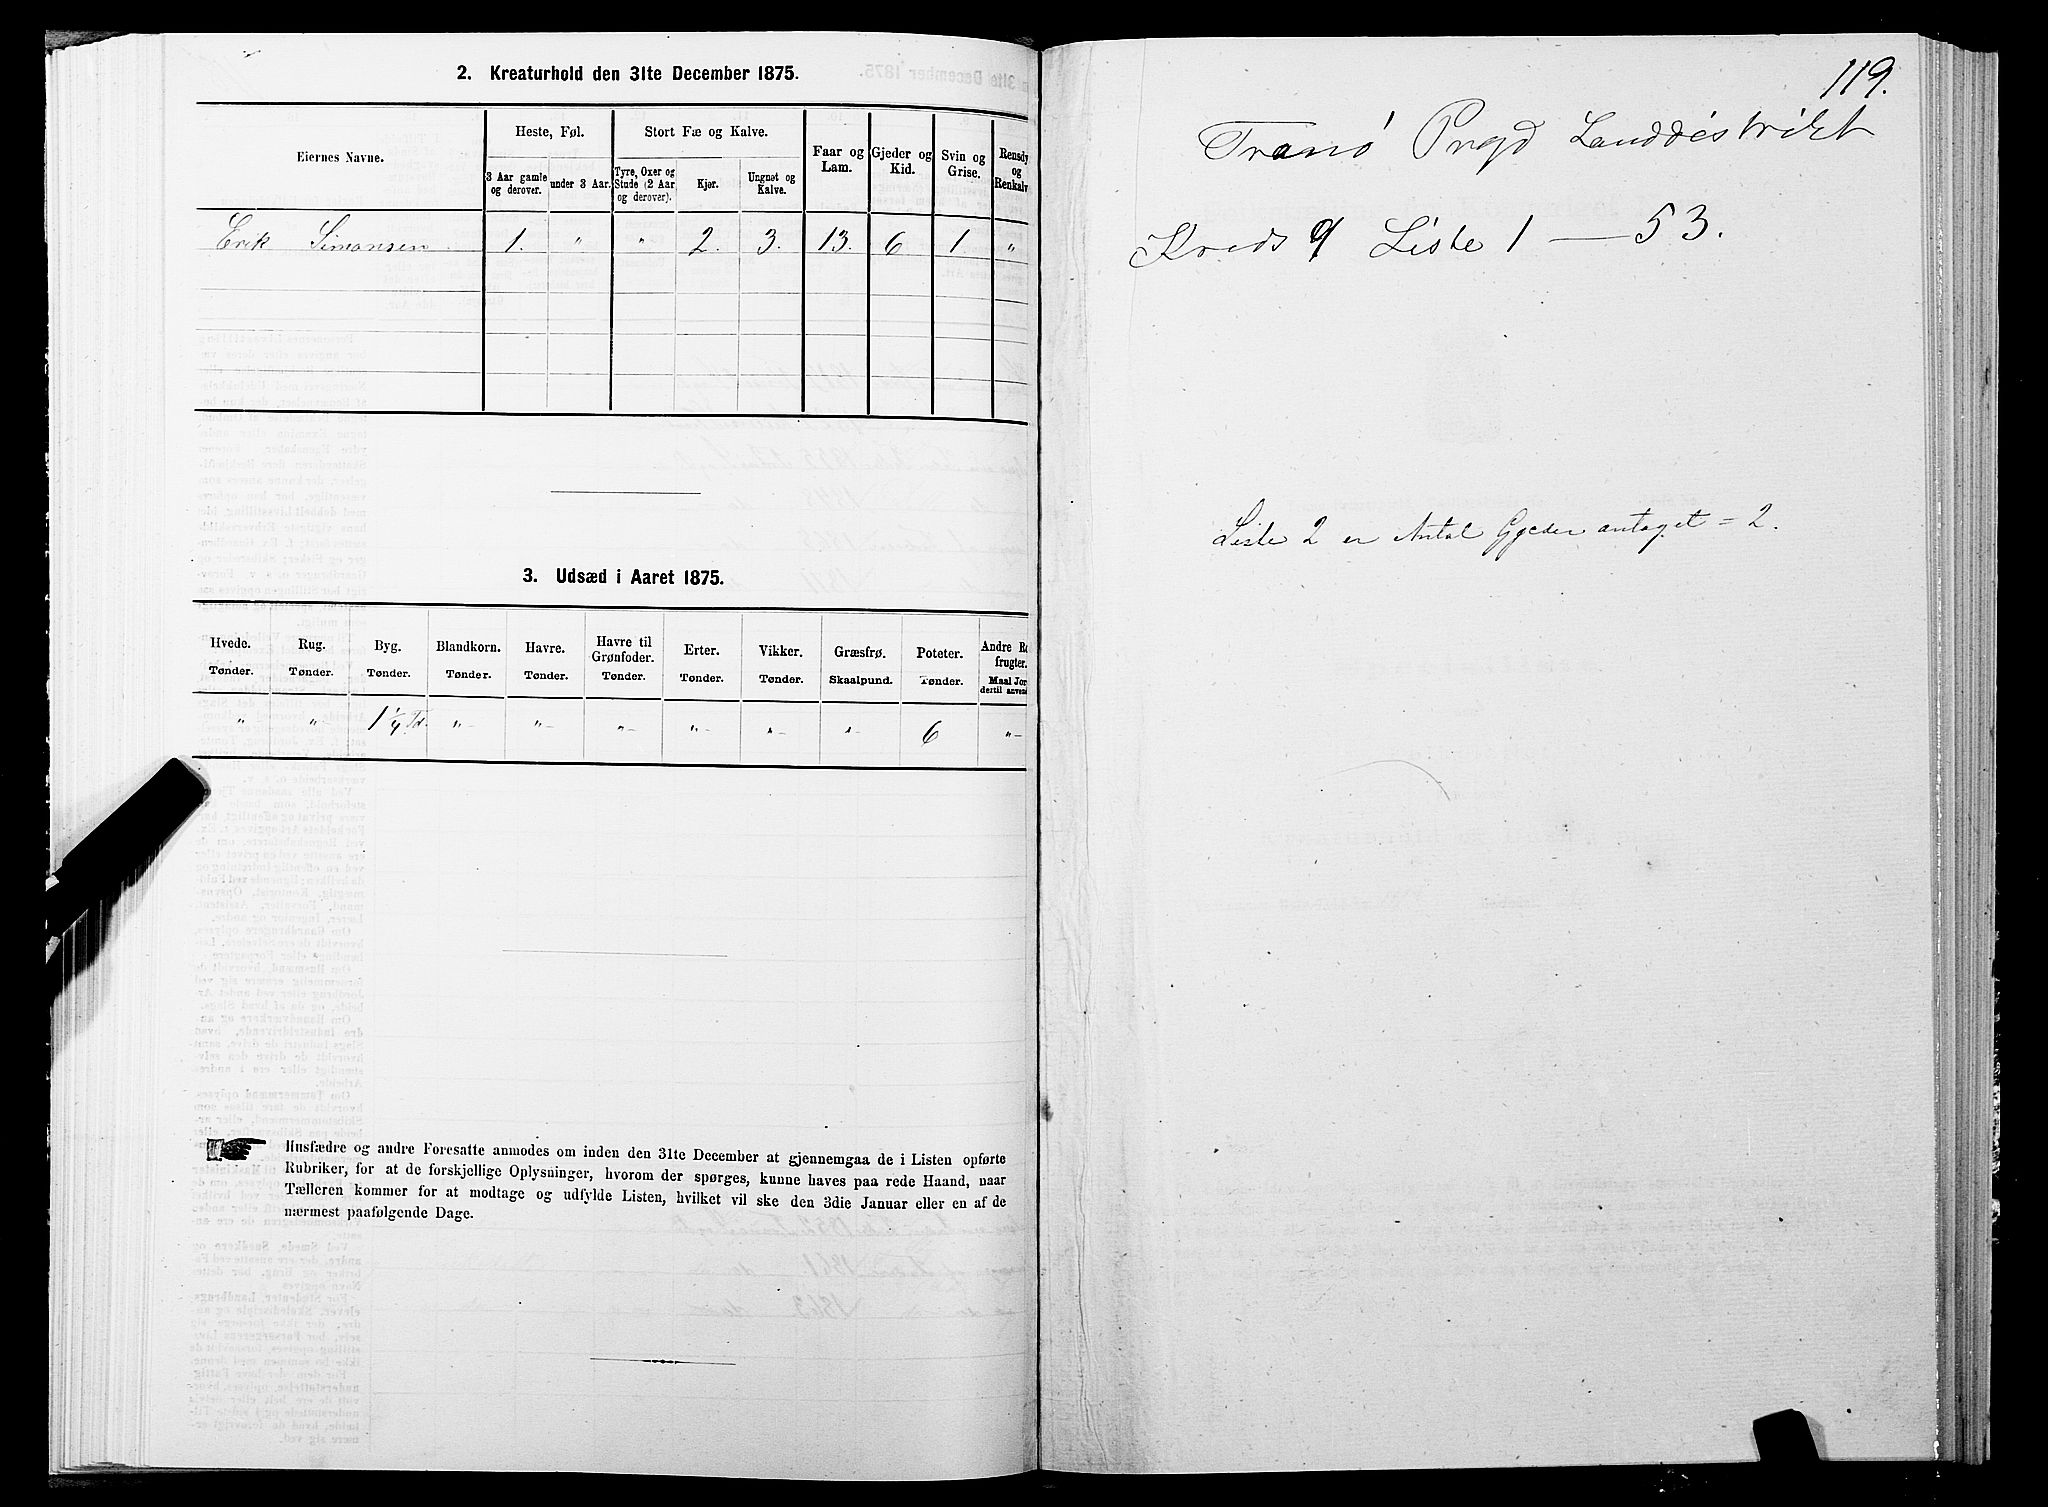 2. Kreaturhold den 31te December 1875.
Eiernes Navne.
Heste, Føl.
Stort Fæ og Kalve.
Faar og Lam.
Gjeder og Kid.
Svin og Grise.
Rensdy og Renkalv
3 Aar gamle og derover.
under 3 Aar.
Tyre, Oxer og Stude (2 Aar og derover).
Kjør.
Ungnøt og Kalve.
Erik Simonsen 1. " " 2. 3. 13. 6 1 "
3. Udsæd i Aaret 1875.
Hvede. Rug. Byg. Blandkorn. Havre. Havre til Grønfoder. Erter. Vikker. Græsfrø. Poteter. Andre Ro frugter.
Tønder. Tønder. Tønder. Tønder. Tønder. Tønder. Tønder. Tønder. Skaalpund. Tønder. Maal Jor dertil anvend
" " 1 1/4 Td. " " " " " " 6 "
Husfædre og andre Foresatte anmodes om inden den 31te December at gjennemgaa de i Listen opførte
Rubriker, for at de forskjellige Oplysninger, hvorom der spørges, kunne haves paa rede Haand, naar
Tælleren kommer for at modtage og udfylde Listen, hvilket vil ske den 3die Januar eller en af de
nærmest paafølgende Dage.
119.
Tranö Prgd Landdistrikt
Kreds 9 Liste 1 — 53.
Liste 2 er Antal Gjeder antaget = 2.